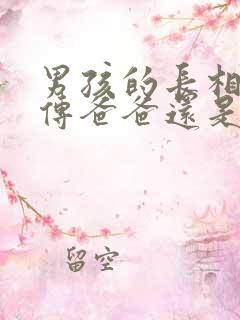 男孩的長相
傳爸爸還是
留空